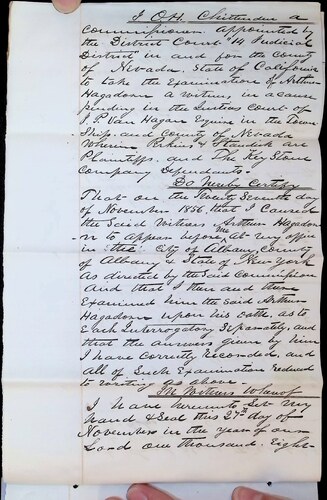 I O.H. Chittenden a
Commissioner appointed by
the District Court "14 Judicial
District" in and for the County
of Nevada, State of California
to take the Examination of Arthur
Hagadorn a Witness, in a cause
pending in the Justices Court of
J.P. Van Hagan Esquire in the Town
Ship and County of Nevada
Wherein & Standish are
Plaintiffs, and The Key Stone
Company Defendants.
Do Hereby Certify
That on the Twenty Seventh day
of November 1856, that I Caused
the Said Witness Arthur Hagador
n to appear before me at my office
in the City of Albany County
of Albany State of New York
As directed by the Said Commission
And that I then and there
Examined him the Said Arthur
Hagadorn upon his oath, as to
Each Interrogatory Separately, and
that the answers given by him
I have Correctly Recorded, and
all of Such Examination reduced
to writing as above.
In Witness Whereof
I have hereunto Set my
Hand & Seal this 27th day of
November in the year of our
Lord one thousand Eight-